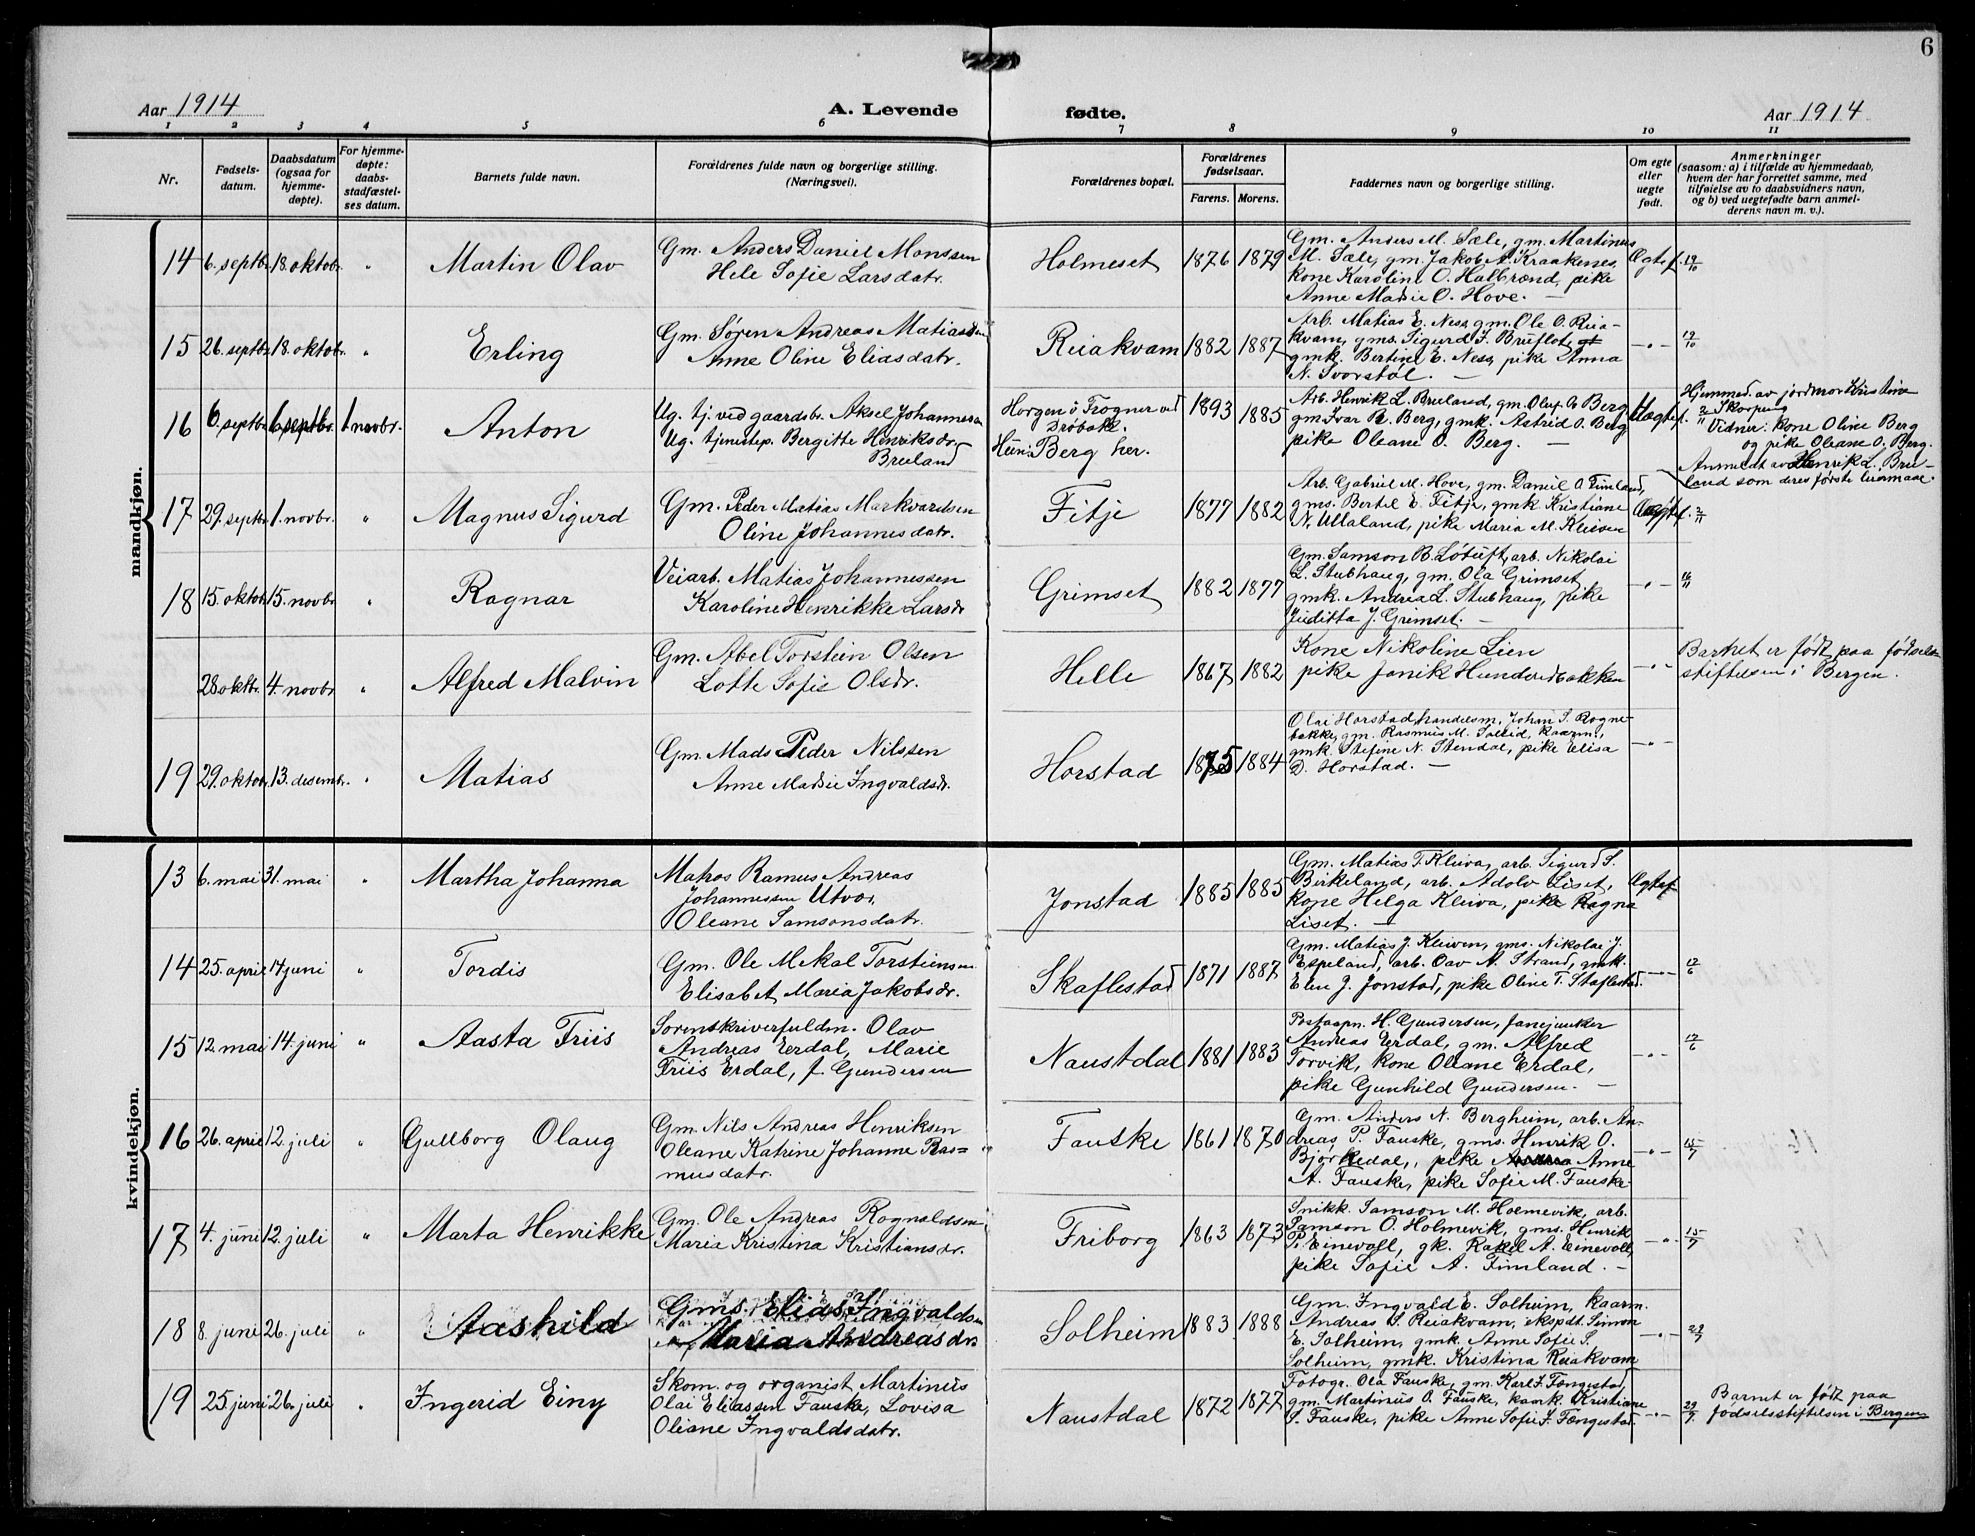 6
Aar 1914
A. Levende
fødte.
Aar 1914
1 2 3 4 5 6 7 8 9 10 11
Nr.
Fødsels-
datum.
Daabsdatum
(ogsaa for
hjemme-
døpte).
For hjemme-
døpte:
daabs-
stadfæstel-
ses datum.
Barnets fulde navn.
Forældrenes fulde navn og borgerlige stilling.
(Næringsvei).
Forældrenes bopæl.
Forældrenes
fødselsaar.
Farens. Morens.
Faddernes navn og borgerlige stilling.
Om egte
eller
uegte
født.
Anmerkninger
(saasom: a) i tilfælde av hjemmedaab,
hvem der har forrettet samme, med
tilføielse av to daabsvidners navn,
og b) ved uegtefødte barn anmel-
derens navn m. v.).
mandkjøn.
14 6. septbr. 18. oktobr. " Martin Olav
Gm. Anders Daniel Monssen
Hele Sofie Larsdatr.
Holmeset 1876 1879
Gm. Anders M. Sæle, gm. Martinus
M. Sæle, gm. Jakob A. Kraakenes,
kone Karoline O. Halbrænd, pike
Anne Marie O. Hove. —
Ægtef. 19/10
15 26. septbr. 18. oktobr. " Erling
Gm. Søren Andreas Matiassen
Anne Oline Eliasdatr.
Reiakvam 1882 1887
Arb. Matias E. Ness, gm. Ole O. Reia-
kvam, gms. Sigurd I. Bruflot,
gmk. Bertine E. Ness, pike Anna
N. Svorstøl. —
— " — 19/10
16 6. septbr. 6. septbr. 1. novbr. Anton
Ug. tj. ved gaardsbr. Aksel Johannesen
Ug. tjenestep. Bergitte Henriksdr.
Breiland
Horgen i Frogner ved
Drøbak.
Hun: Berg her.
1893 1885
Arb. Henrik L. Breiland, gm. Oluf O. Berg
gm. Ivar R. Berg, gmk. Astrid O. Berg
pike Oleane O. Berg. —
Uægtef. 2/11
Hjemmed. av jordmor Kristine
Skorpen
Vidner: kone Oline Berg
og pike Oleane O. Berg.
Anmeldt av Henrik L. Brei-
land som deres første leiermaal.
17 29. septbr. 1. novbr. " Magnus Sigurd
Gm. Peder Matias Markvardsen
Oline Johannesdatr.
Fitje 1877 1882
Arb. Gabriel M. Hove, gm. Daniel O. Fimland,
gms. Bertel E. Fitje, gmk Kristiane
N. Ullaland, pike Maria M. Kleiven
Ægtef. 2/11
18 15. oktobr. 15. novbr. " Ragnar
Veiarb. Matias Johannessen
Karoline Henrikke Larsdr
Grimset 1882 1877
Gm. Samson B. Løtuft, arb. Nikolai
L. Stubhaug, gm. Ola Grimset,
gmk. Andrea L. Stubhaug, pike
Juditta J. Grimset. —
— " — 16/11
28. oktbr. 4. novbr. " Alfred Malvin
Gm. Abel Torstein Olsen
Lotte Sofie Olsdr.
Helle 1867 1882
Kone Nikoline Lien
pike Janik Hunderidbakken
— " —
Barnet er født paa fødsels-
stiftelsen i Bergen.
19 29. oktobr. 13. desembr. " Matias
Gm. Mads Peder Nilssen
Anne Marie Ingvaldsdr.
Horstad 1875 1884
Olai Horstad, handelsm, Johan S. Rogne-
bakke, gm. Rasmus M. Solheid, kaarm.,
gmk. Stefine N. Stendal, pike Elisa
D. Horstad. —
— " —
kvindekjøn.
13 6. mai 31. mai " Martha Johanna
Matros Ramus Andreas
Johannessen Utvor,
Oleane Samsonsdatr.
Jonstad 1885 1885
Gm. Matias T. Kleiva, arb. Sigurd S.
Birkeland, arb. Adolv Liset,
kone Helga Kleiva, pike Ragna
Liset. —
Ægtef
14 25. april 14 juni " Tordis
Gm. Ole Mekal Torstiensen
Elisabet Maria Jakobsdr.
Skaflestad 1871 1887
Gm. Matias J. Kleiven, gms. Nikolai J.
Espeland, arb. Oav M. Strand, gmk.
Elen J. Jonstad, pike Oline T. Staflestad.
— " — 17/6
15 12. mai 14. juni " Aasta Friis
Sorenskriverfuldm. Olav
Andreas Erdal, Marie
Friis Erdal, f. Gundersen
Naustdal 1881 1883
Postaapn. H. Gundersen, fanejunker
Andreas Erdal, gm. Alfred
Torvik, kone Oleane Erdal,
pike Gunhild Gundersen. —
— " — 17/6
16 26. april 12. juli " Gullborg Olaug
Gm. Nils Andreas Henriksen
Oleane Katrine Johanne Ras=
musdatr.
Fauske 1861 1870
Gm. Anders N. Bergheim, arb. An-
dreas P. Fauske, gms. Henrik O.
Bjørkedal, pike Anne
A. Fauske, pike Sofie M. Fauske.
— " — 15/7
17 4. juni 12. juli " Marta Henrikke
Gm. Ole Andreas Rognaldsen
Maria Kristina Kristiansdr.
Friborg 1863 1873
Snikk Samson M. Holmevik, arb.
Samson O. Holmevik, gms. Henrik
P. Einevoll, gk. Rakel A. Einevoll,
pike Sofie A. Fimland. —
— " — 15/7
18 8. juni 26. juli " Aashild
Gms. Elias Ingvaldsen
Maria Andreasdr.
Solheim 1883 1888
Gm. Ingvald E. Solheim, kaarm.
Andreas S. Reiakvam, ekspdt. Simon
E. Solheim, gmk. Anne Sofie S.
Solheim, gmk. Kristina Reiakvam
— " — 29/7
19 25. juni 26. juli " Ingerid Einy
Skom. og organist Martinus
Olai Eliassen Fauske, Lovisa
Oliane Ingvaldsdatr.
Naustdal 1872 1877
Fotogr. Ola Fauske, gm. Karl I. Tængestad,
gm. Martinus O. Fauske, kaark. Kristiane
S. Fauske, pike Anne Sofie I. Tængestad.
— " — 29/7
Barnet er født paa
fødselsstiftelsen i Bergen